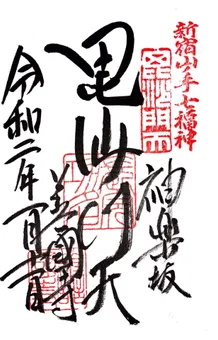 新宿山ノ手七福神
毘沙門天
神楽坂
毘沙門天
善國寺
令和二年一月